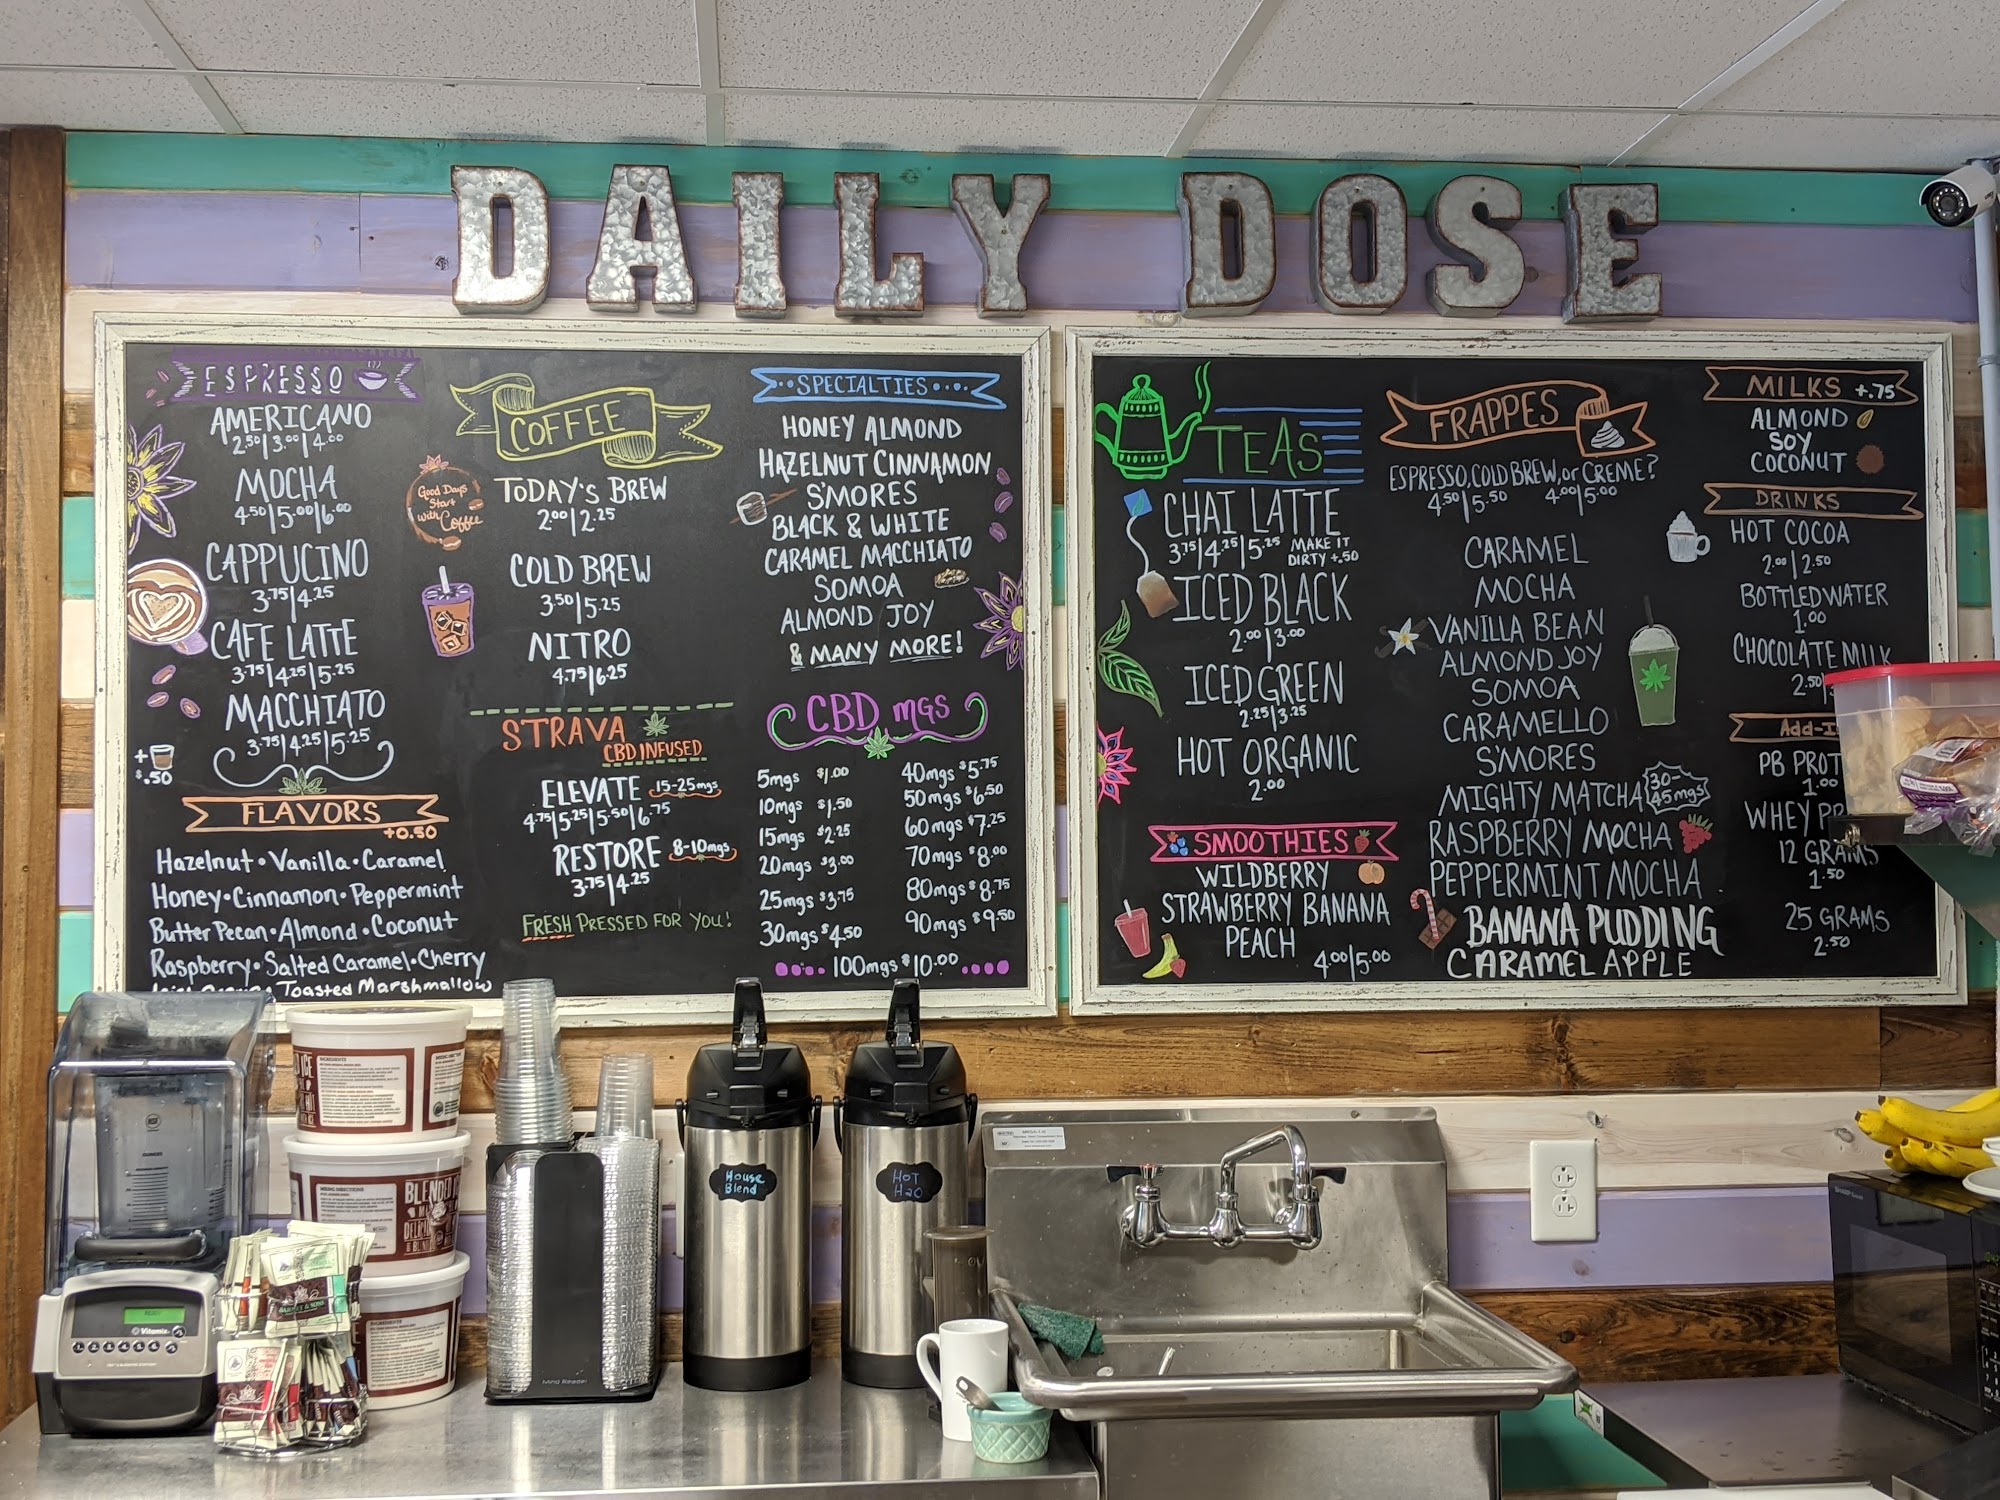 DAILY DOSE
ESPRESSO
AMERICANO
2.50|3.00|4.00
MOCHA
4.50|5.00|6.00
CAPPUCINO
3.75|4.25
CAFE LATTE
3.75|4.25|5.25
MACCHIATO
3.75|4.25|5.25
+
$.50
FLAVORS
+0.50
Hazelnut • Vanilla • Caramel
Honey • Cinnamon • Peppermint
Butter Pecan • Almond • Coconut
Raspberry • Salted Caramel • Cherry
Toasted Marshmallow
COFFEE
Good Days
Start
with Coffee
TODAY'S BREW
2.00|2.25
COLD BREW
3.50|5.25
NITRO
4.75|6.25
STRAVA
CBD INFUSED
ELEVATE 15-25mgs
4.75|5.25|5.50|6.75
RESTORE 8-10mgs
3.75|4.25
FRESH PRESSED FOR YOU!
SPECIALTIES
HONEY ALMOND
HAZELNUT CINNAMON
S'MORES
BLACK & WHITE
CARAMEL MACCHIATO
SOMOA
ALMOND JOY
& MANY MORE!
CBD MGS
5mgs $1.00
10mgs $1.50
15mgs $2.25
20mgs $3.00
25mgs $3.75
30mgs $4.50
40mgs $5.75
50mgs $6.50
60mgs $7.25
70mgs $8.00
80mgs $8.75
90mgs $9.50
100mgs $10.00
TEAS
CHAI LATTE
3.75|4.25|5.25 MAKE IT
DIRTY +.50
ICED BLACK
2.00|3.00
ICED GREEN
2.25|3.25
HOT ORGANIC
2.00
SMOOTHIES
WILDBERRY
STRAWBERRY BANANA
PEACH
4.00|5.00
FRAPPES
ESPRESSO, COLD BREW, or CREME?
4.50|5.50 4.00|5.00
CARAMEL
MOCHA
VANILLA BEAN
ALMOND JOY
SOMOA
CARAMELLO
S'MORES
MIGHTY MATCHA 30-
45mgs
RASPBERRY MOCHA
PEPPERMINT MOCHA
BANANA PUDDING
CARAMEL APPLE
MILKS +.75
ALMOND
SOY
COCONUT
DRINKS
HOT COCOA
2.00|2.50
BOTTLED WATER
1.00
CHOCOLATE MILK
2.50
Add-I
PB PROT
1.00
WHEY PR
12 GRAMS
1.50
25 GRAMS
2.50
House
Blend
HOT
H2O
Vitamix
BLENDED
Mind Reader
SHARP